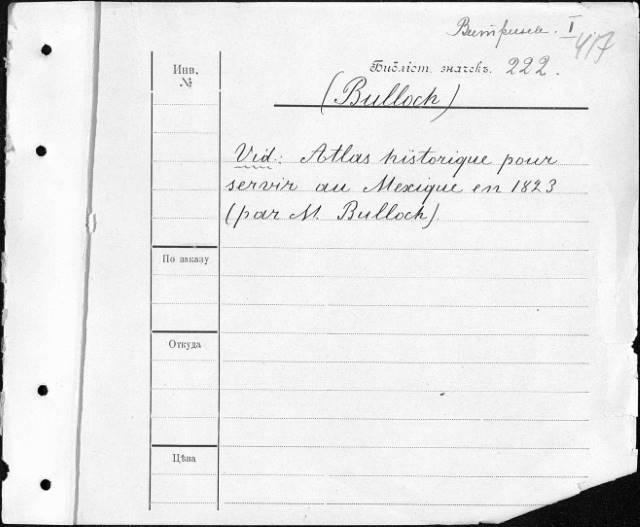 Витрина. I
417
Инв.
№
Библіот. значекъ. 222.
(Bullock)
Vid.: Atlas historique pour
servir au Mexique en 1823
(par M. Bullock).
По заказу
Откуда
Цѣна